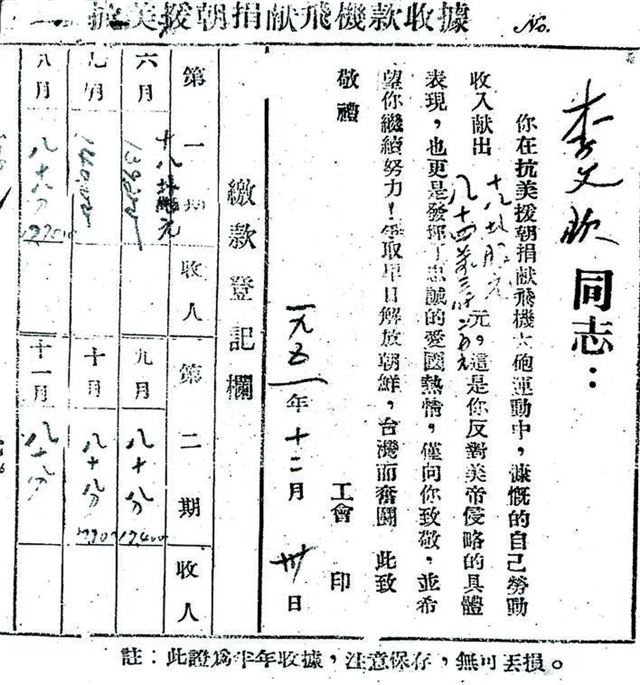 抗美援朝捐献飛機款收據
No.
李文欣 同志：
你在抗美援朝捐献飛機大砲運動中，慷慨的自己勞動
收入献出 元。這是你反對美帝侵略的具體
表現，也更是發揮了忠誠的愛國熱情，僅向你致敬，並希
望你繼續努力！爭取早日解放朝鮮，台灣而奮鬪 此致
敬禮
工會 印
一九五一年十二月卅日
繳款登記欄
第一期 收人 第二期 收人
六月 九月 八十八分 17400
七月 十月 八十八分
八月 八十八分 十一月 八十八分
註：此證爲半年收據，注意保存，無可丟損。